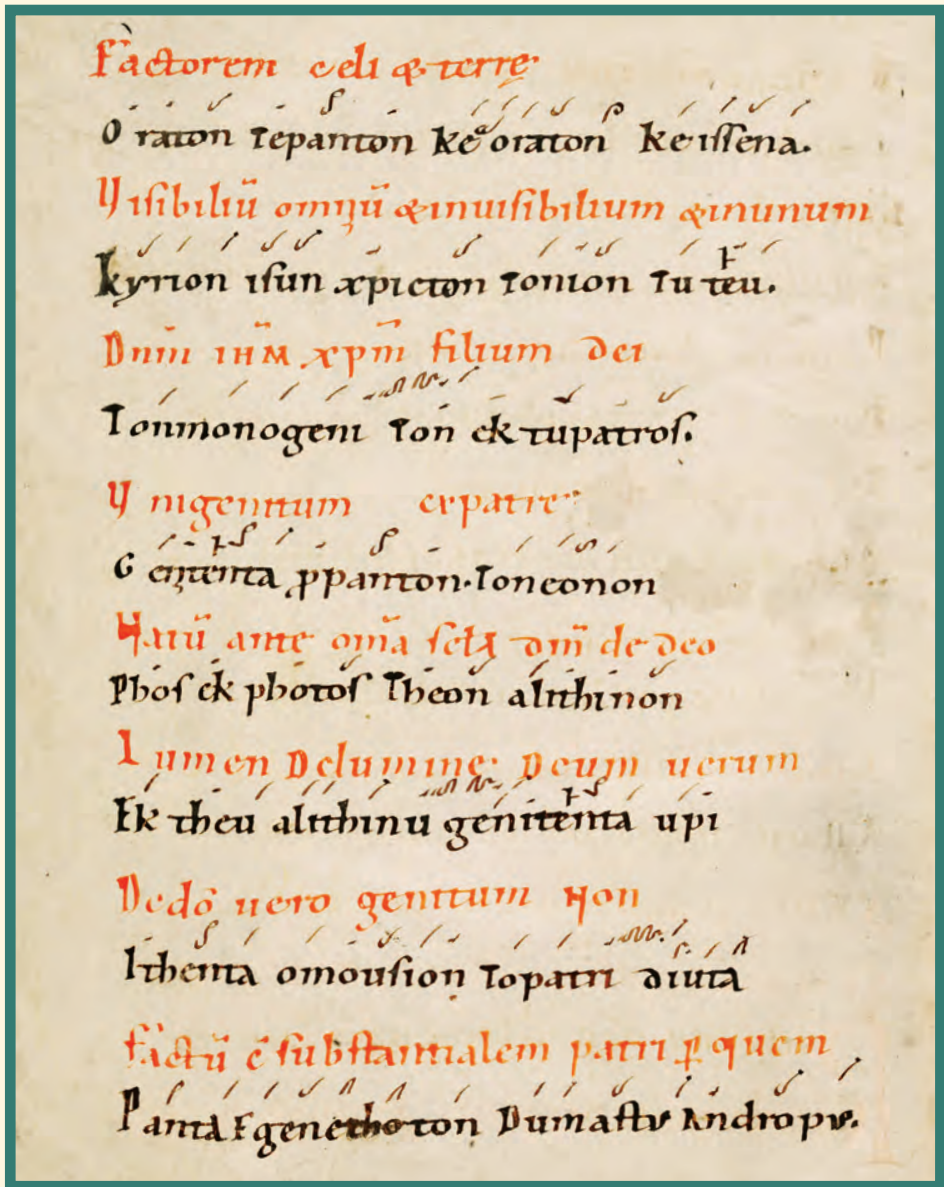 Factorem celi & terrę
Oraton tepanton keaoraton keissena.
Visibiliū omniū & inuisibilium & inunum
kyrion isun xpicton tonion tu teu.
Dnm̄ ihm̄ xpm̄ filium dei
Tonmonogeni ton ek tupatros.
Vnigenitum expatre
Gennitenta ꝓpanton. toneonon
Natū ante om̄a scła dm̄ de deo
Phos ek photos Theon alithinon
Lumen Delumine Deum uerum
Ek theu alithinu genitenta upi
Dedō uero genitum Non
Ithenta omousion topatri diuta
factū c̄substantialem patri ꝑ quem
Panta Egenetho ton Dumastus Andropus.